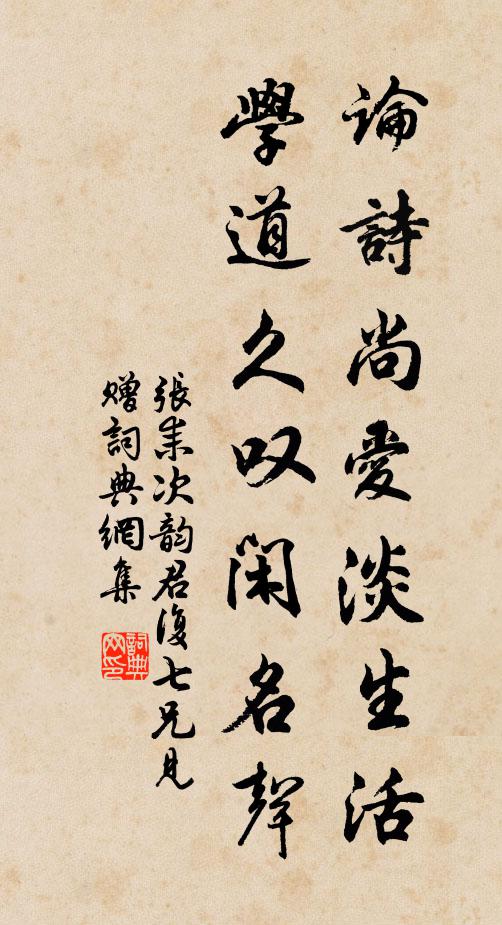 論詩尚愛淡生活
學道久叹閑名聲
張耒次韵君復七兄見
贈詞典網集
詞典
网印